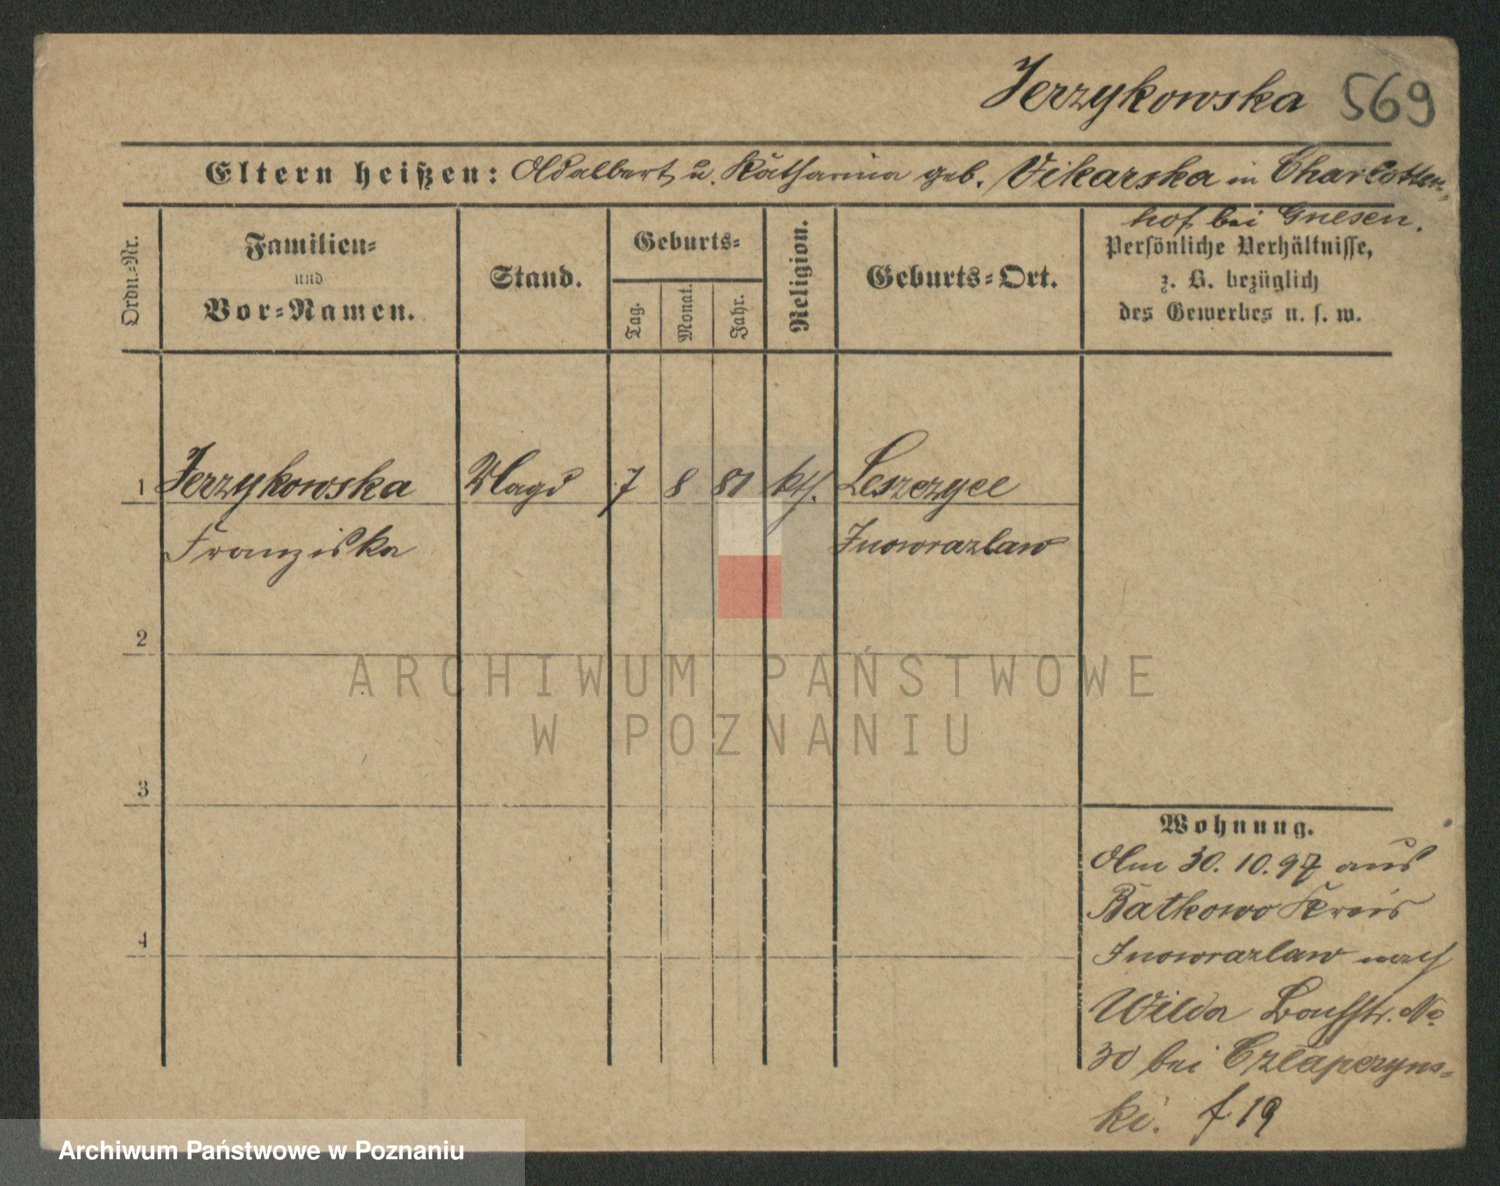 Jerzykowska 569
Eltern heißen: Adalbert u. Katharina geb. Vikarska in Charlotten-
hof bei Gnesen.
Ordn.-Nr.
Familien-
und
Vor-Namen.
Stand.
Geburts-
Tag.
Monat.
Jahr.
Religion.
Geburts-Ort.
Persönliche Verhältnisse,
z. B. bezüglich
des Gewerbes u. s. w.
1 Jerzykowska Magd 7 8 81 kth. Leszczyce
Franziska Inowrazlaw
2
3
4
Wohnung.
Am 30. 10. 97 aus
Batkowo Kreis
Inowrazlaw nach
Wilda Bachstr. No
30 bei Czlapczyns-
ki. f 19
ARCHIWUM PAŃSTWOWE
W POZNANIU
Archiwum Państwowe w Poznaniu